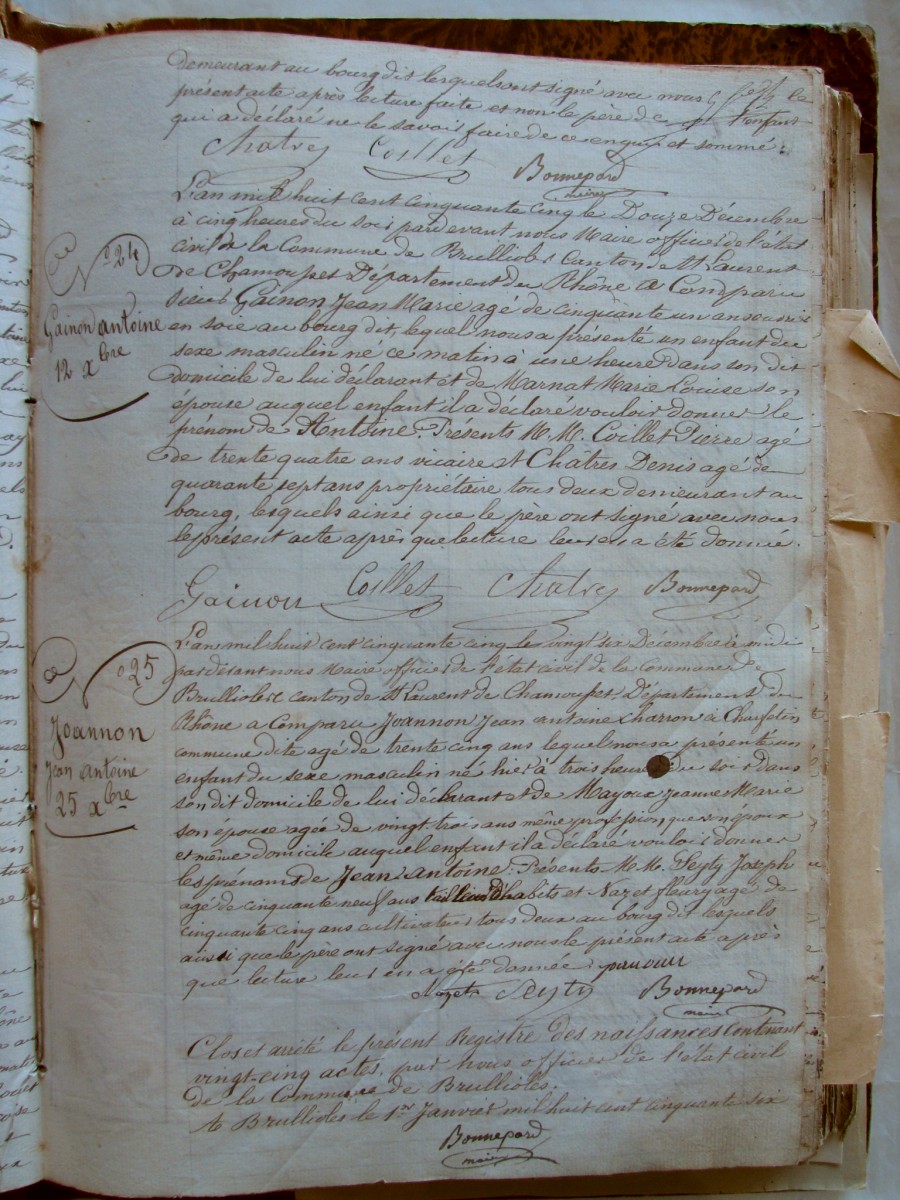 demeurant au bourg dit lesquels ont signé avec nous le
présent acte après lecture faite et non le père de l'enfant
qui a déclaré ne le savoir faire de ce enquis et sommé.
Chatre Coillet
Bonnepard
maire
N° 24
Gainon Antoine
12 Xbre
L'an mil huit cent cinquante cinq le Douze Décembre
à cinq heures du soir pardevant nous Maire officier de l'état
civil de la Commune de Brullioles Canton de St Laurent
de Chamousset Département du Rhône a Comparu
sieur Gainon Jean Marie agé de cinquante un ans ouvrier
en soie au bourg dit, lequel nous a présenté un enfant du
sexe masculin né ce matin à une heure dans son dit
domicile de lui déclarant et de Marnat Marie Louise son
épouse auquel enfant il a déclaré vouloir donner le
prenom de Antoine. Présents M.M. Coillet Pierre agé
de trente quatre ans vicaire et Châtres Denis agé de
quarante sept ans propriétaire tous deux demeurant au
bourg, lesquels ainsi que le père ont signé avec nous
le présent acte après que lecture leur en a été donné.
Gainon Coillet Chatre Bonnepard
N° 25
Joannon
Jean Antoine
25 Xbre
L'an mil huit cent cinquante cinq le vingt six Décembre à midi
par devant nous Maire officier de l'état civil de la commune de
Brullioles canton de St Laurent de Chamousset Département du
Rhône a Comparu Joannon Jean Antoine charron à
commune dite agé de trente cinq ans lequel nous a présenté un
enfant du sexe masculin né hier à trois heures du soir dans
son dit domicile de lui déclarant et de Mayoux Jeanne Marie
son épouse agée de vingt-trois ans même profession que son époux
et même domicile auquel enfant il a déclaré vouloir donner
les prénoms de Jean Antoine. Présents M.M. Peyty Joseph
agé de cinquante neuf ans tailleur d'habits et Nazet fleury agé de
cinquante cinq ans cultivateur tous deux au bourg dit lesquels
ainsi que le père ont signé avec nous le présent acte après
que lecture leur en a été donnée.
Nazet Peyty Bonnepard
maire
Clos et arrêté le présent Registre des naissances Contenant
vingt-cinq actes, par nous officier de l'état civil
de la Commune de Brullioles.
A Brullioles le 1er Janvier mil huit cent cinquante six
Bonnepard
maire